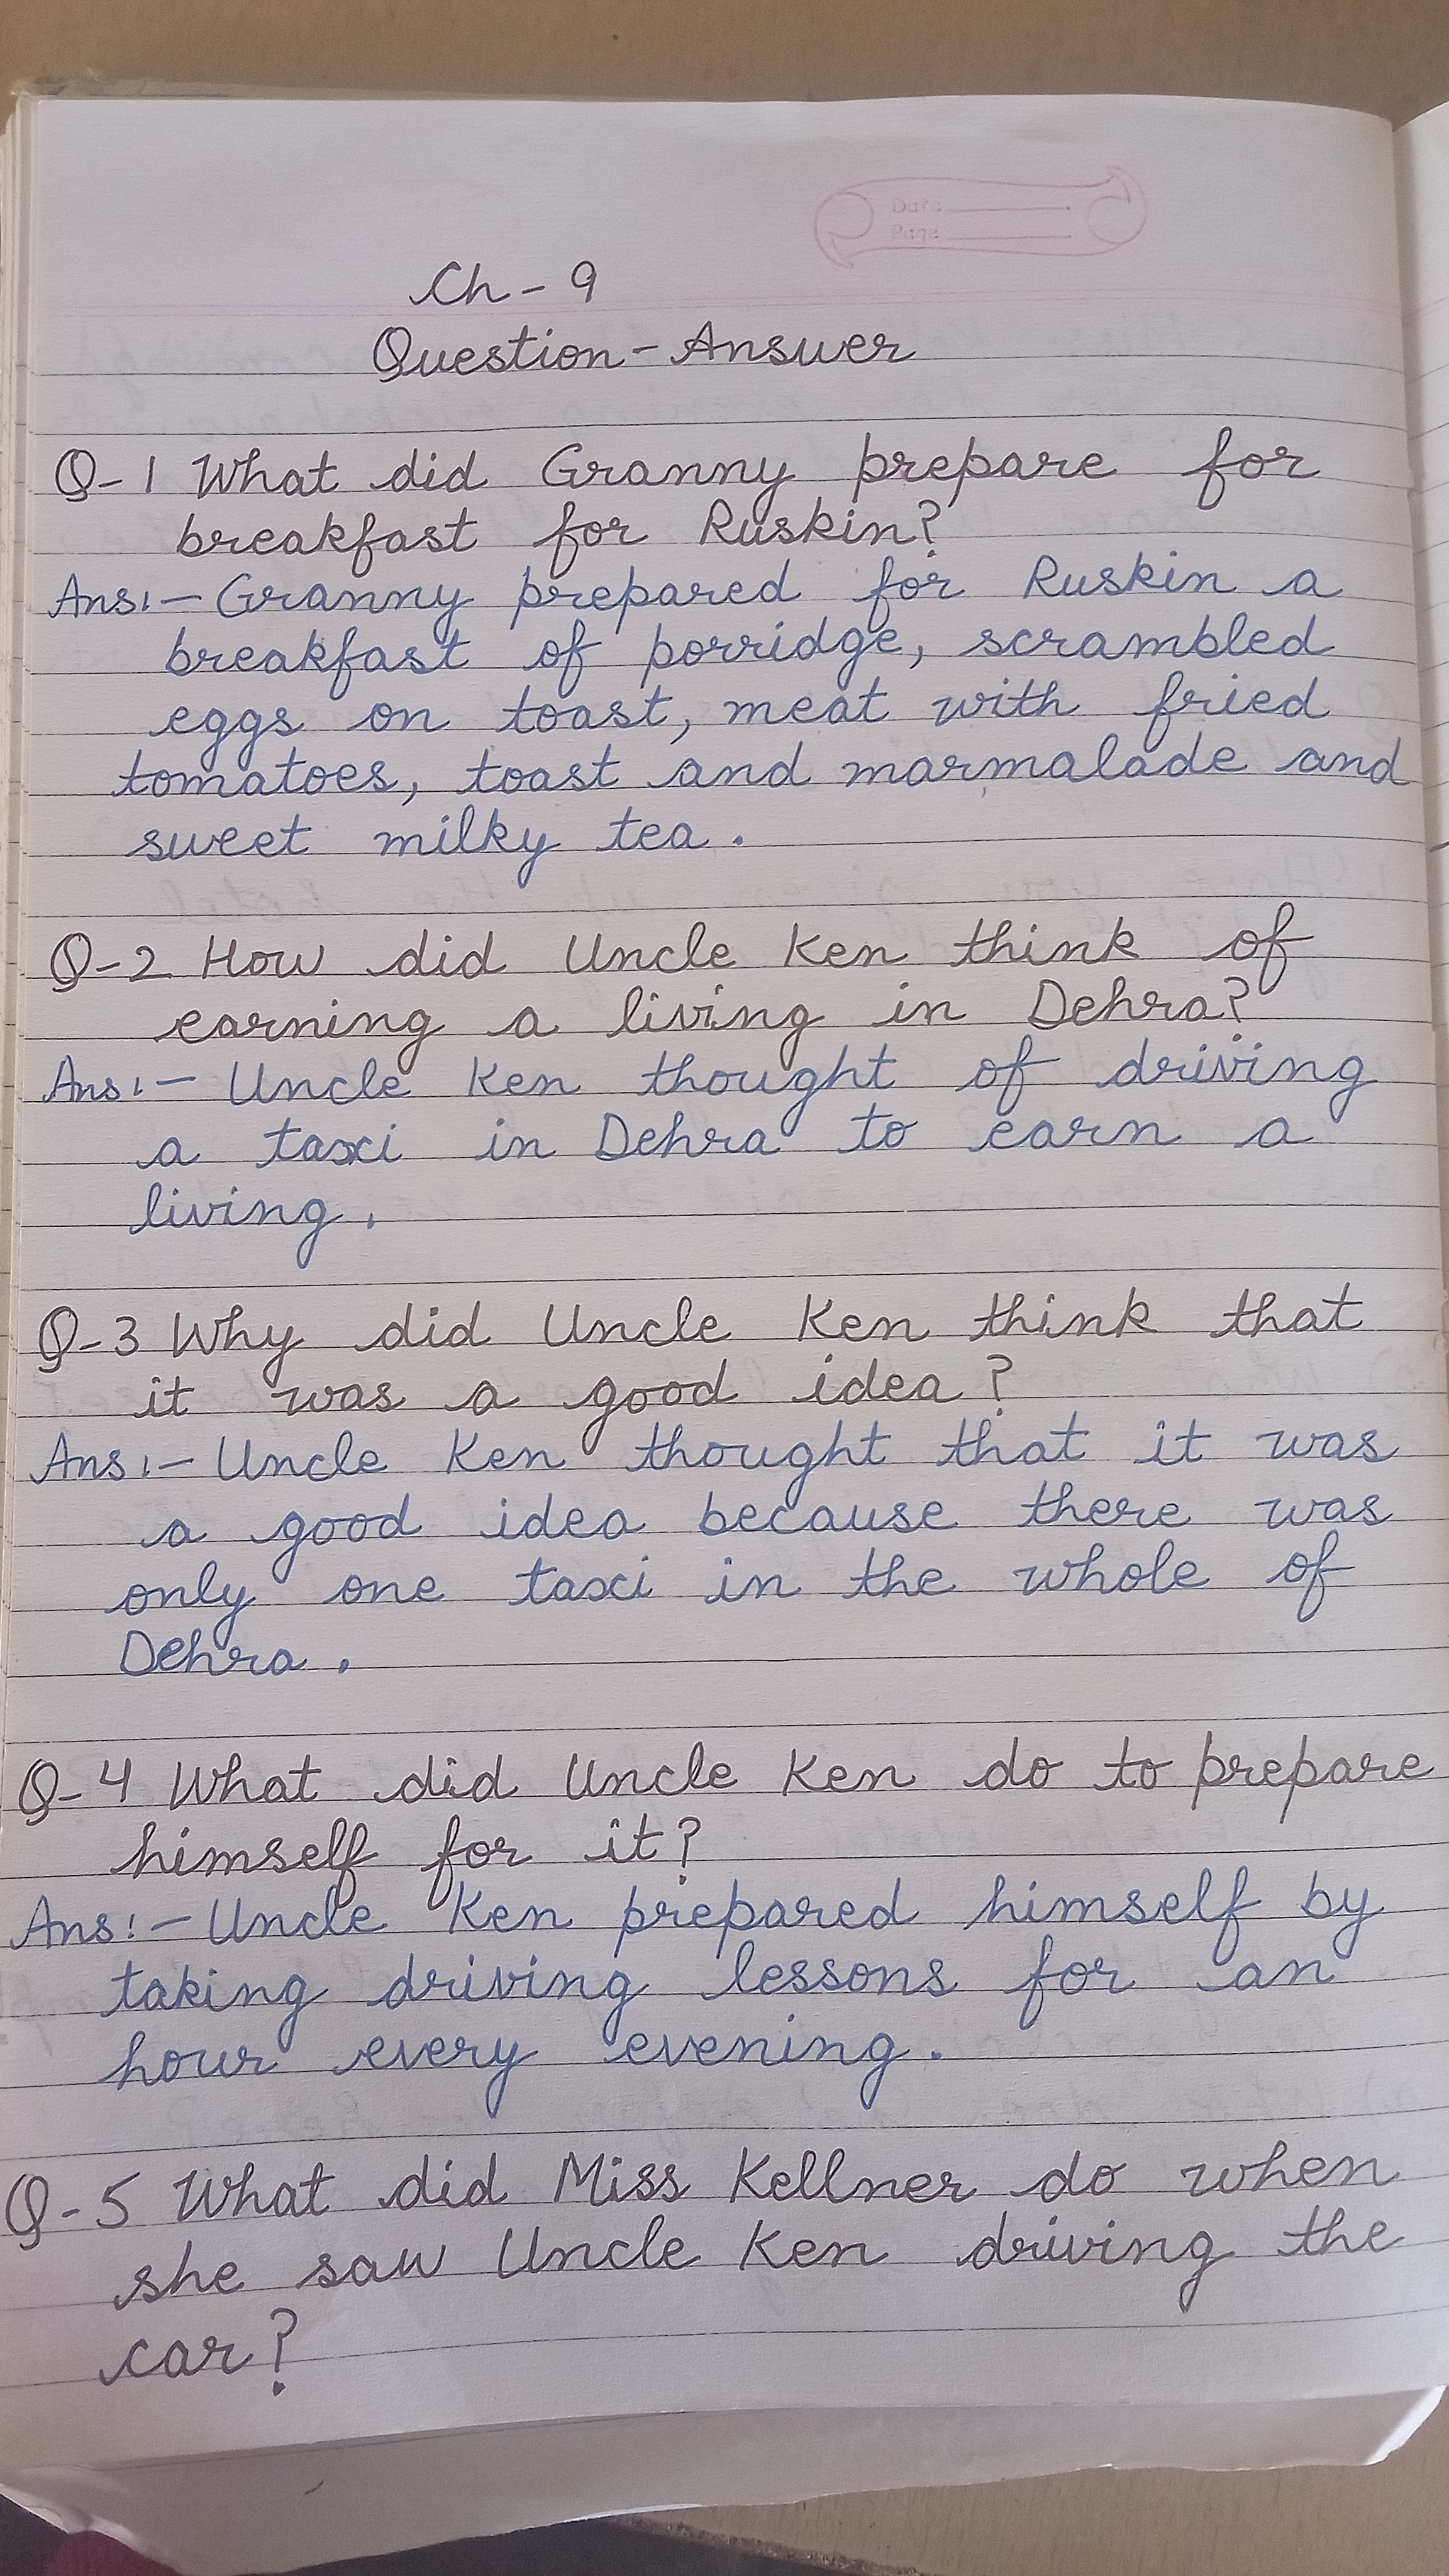 Date
Page
Ch - 9
Question - Answer
Q-1 What did Granny prepare for
breakfast for Ruskin?
Ans:- Granny prepared for Ruskin a
breakfast of porridge, scrambled
eggs on toast, meat with fried
tomatoes, toast and marmalade and
sweet milky tea.
Q-2 How did Uncle Ken think of
earning a living in Dehra?
Ans:- Uncle Ken thought of driving
a taxi in Dehra to earn a
living.
Q-3 Why did Uncle Ken think that
it was a good idea?
Ans:- Uncle Ken thought that it was
a good idea because there was
only one taxi in the whole of
Dehra.
Q-4 What did Uncle Ken do to prepare
himself for it?
Ans:- Uncle Ken prepared himself by
taking driving lessons for an
hour every evening.
Q-5 What did Miss Kellner do when
she saw Uncle Ken driving the
car?